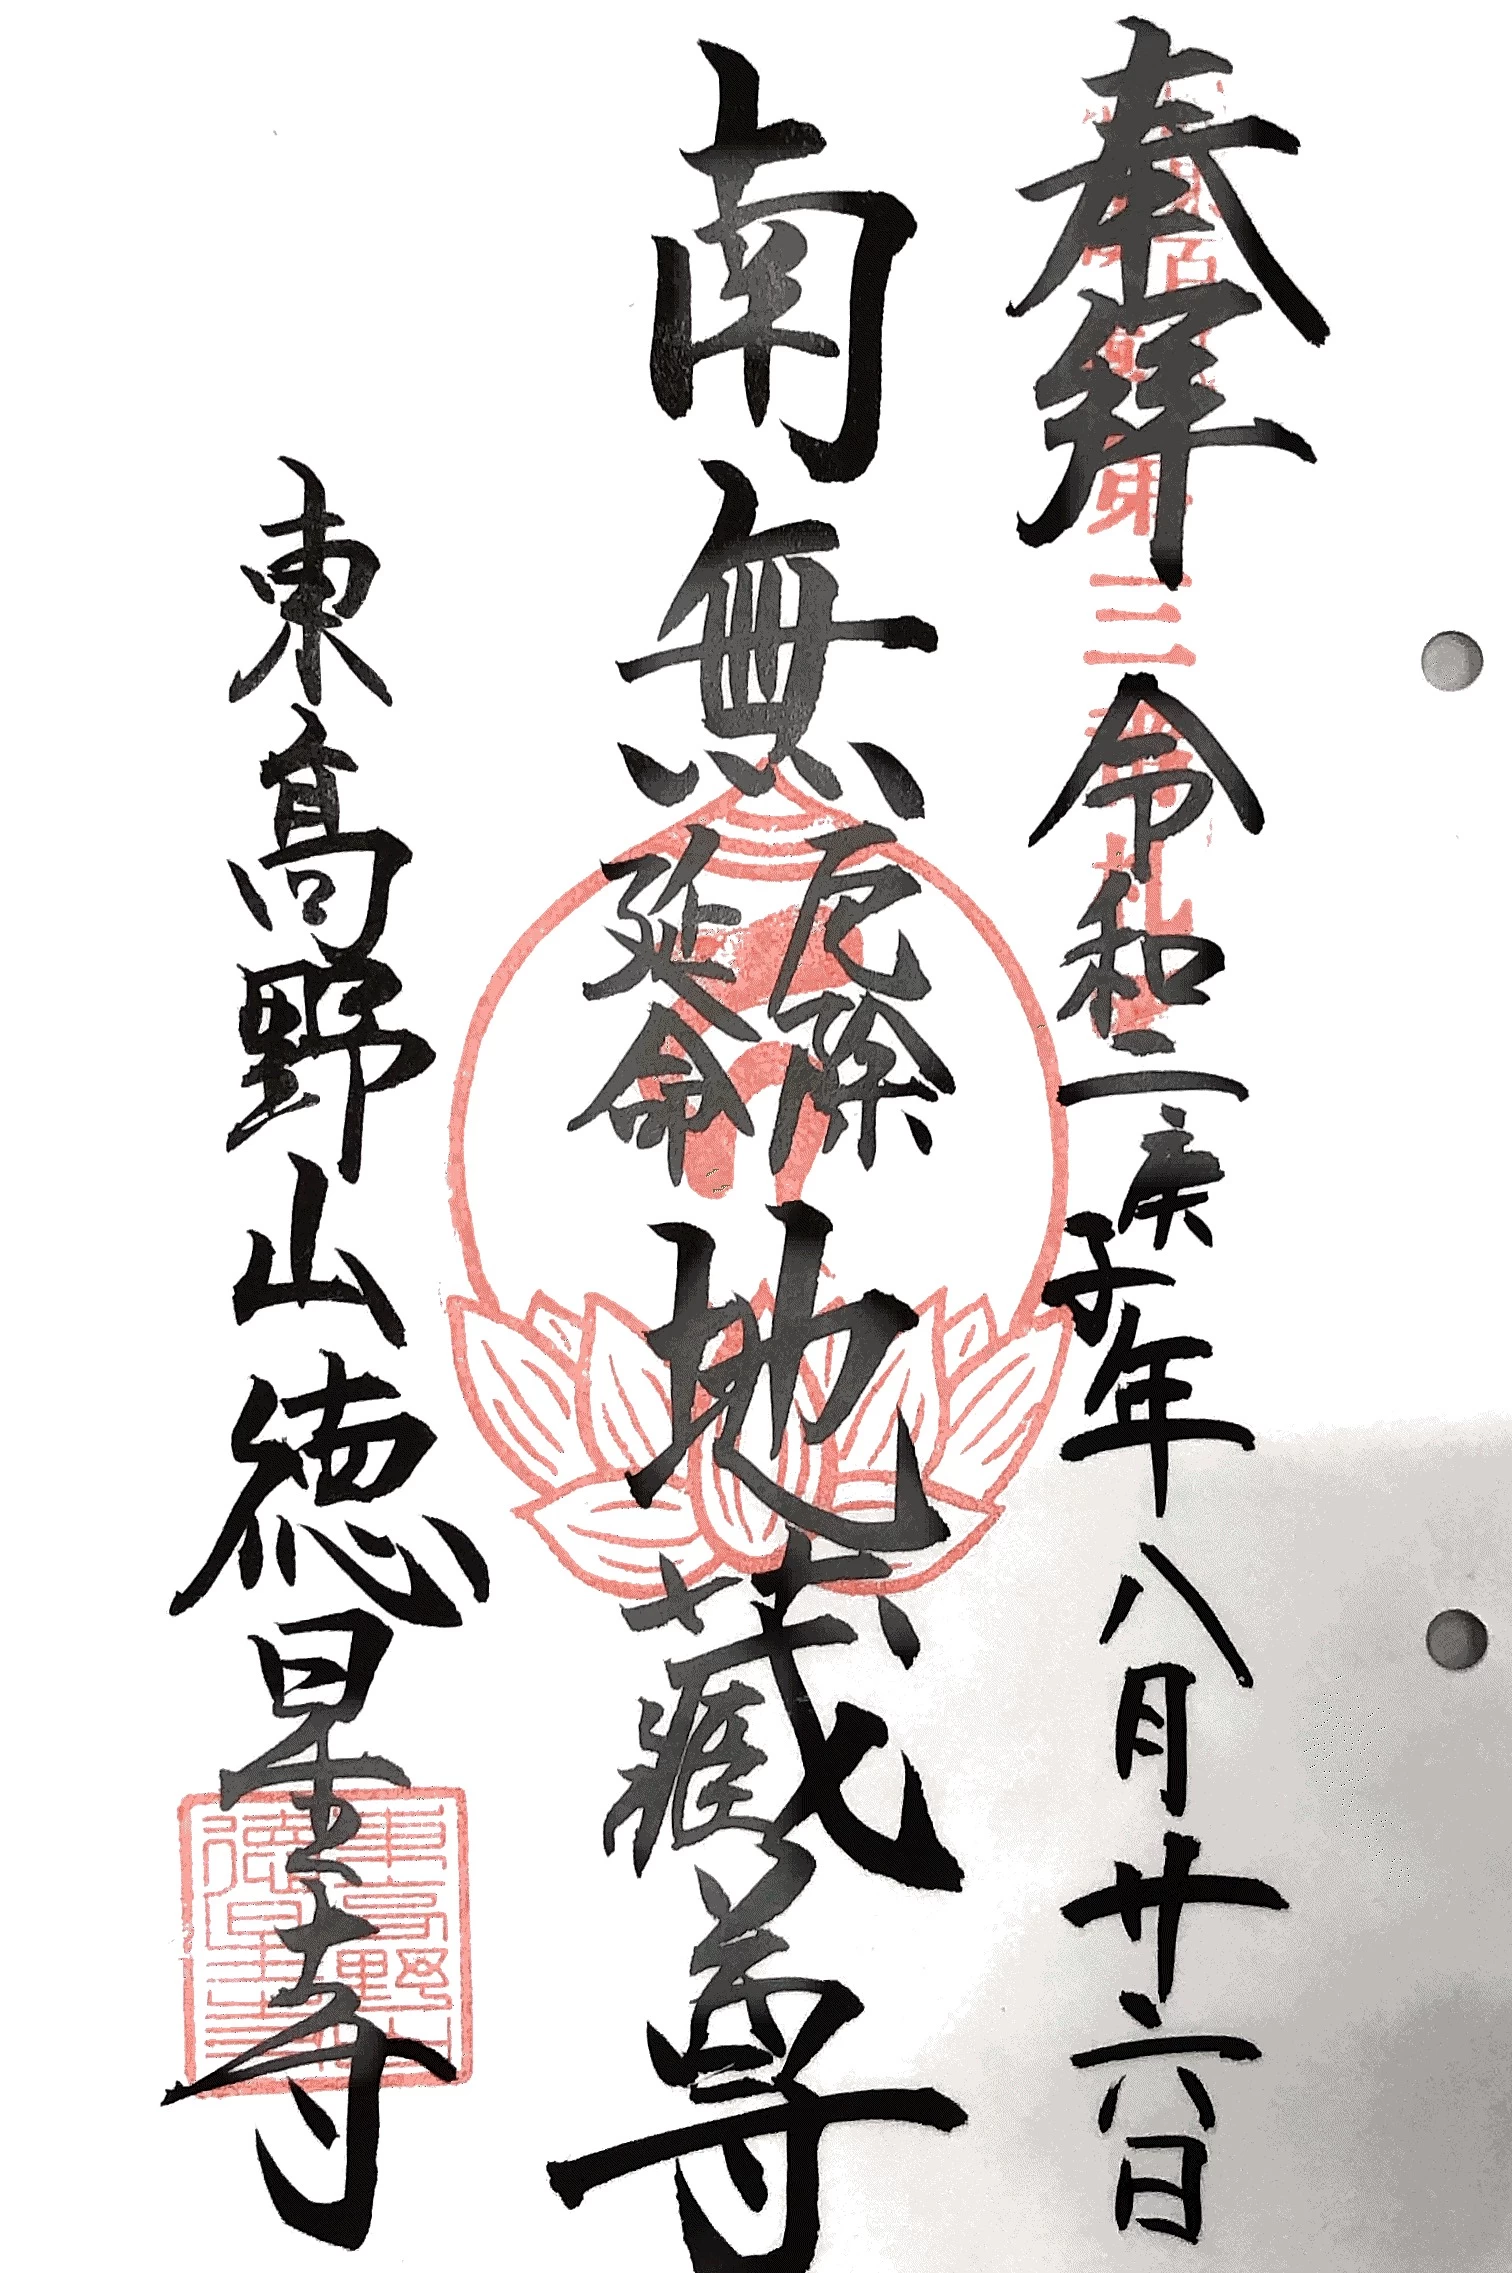 奉拝
令和二庚子年八月廿六日
南無
厄除
延命
地蔵尊
東高野山徳星寺
東高野山
徳星寺